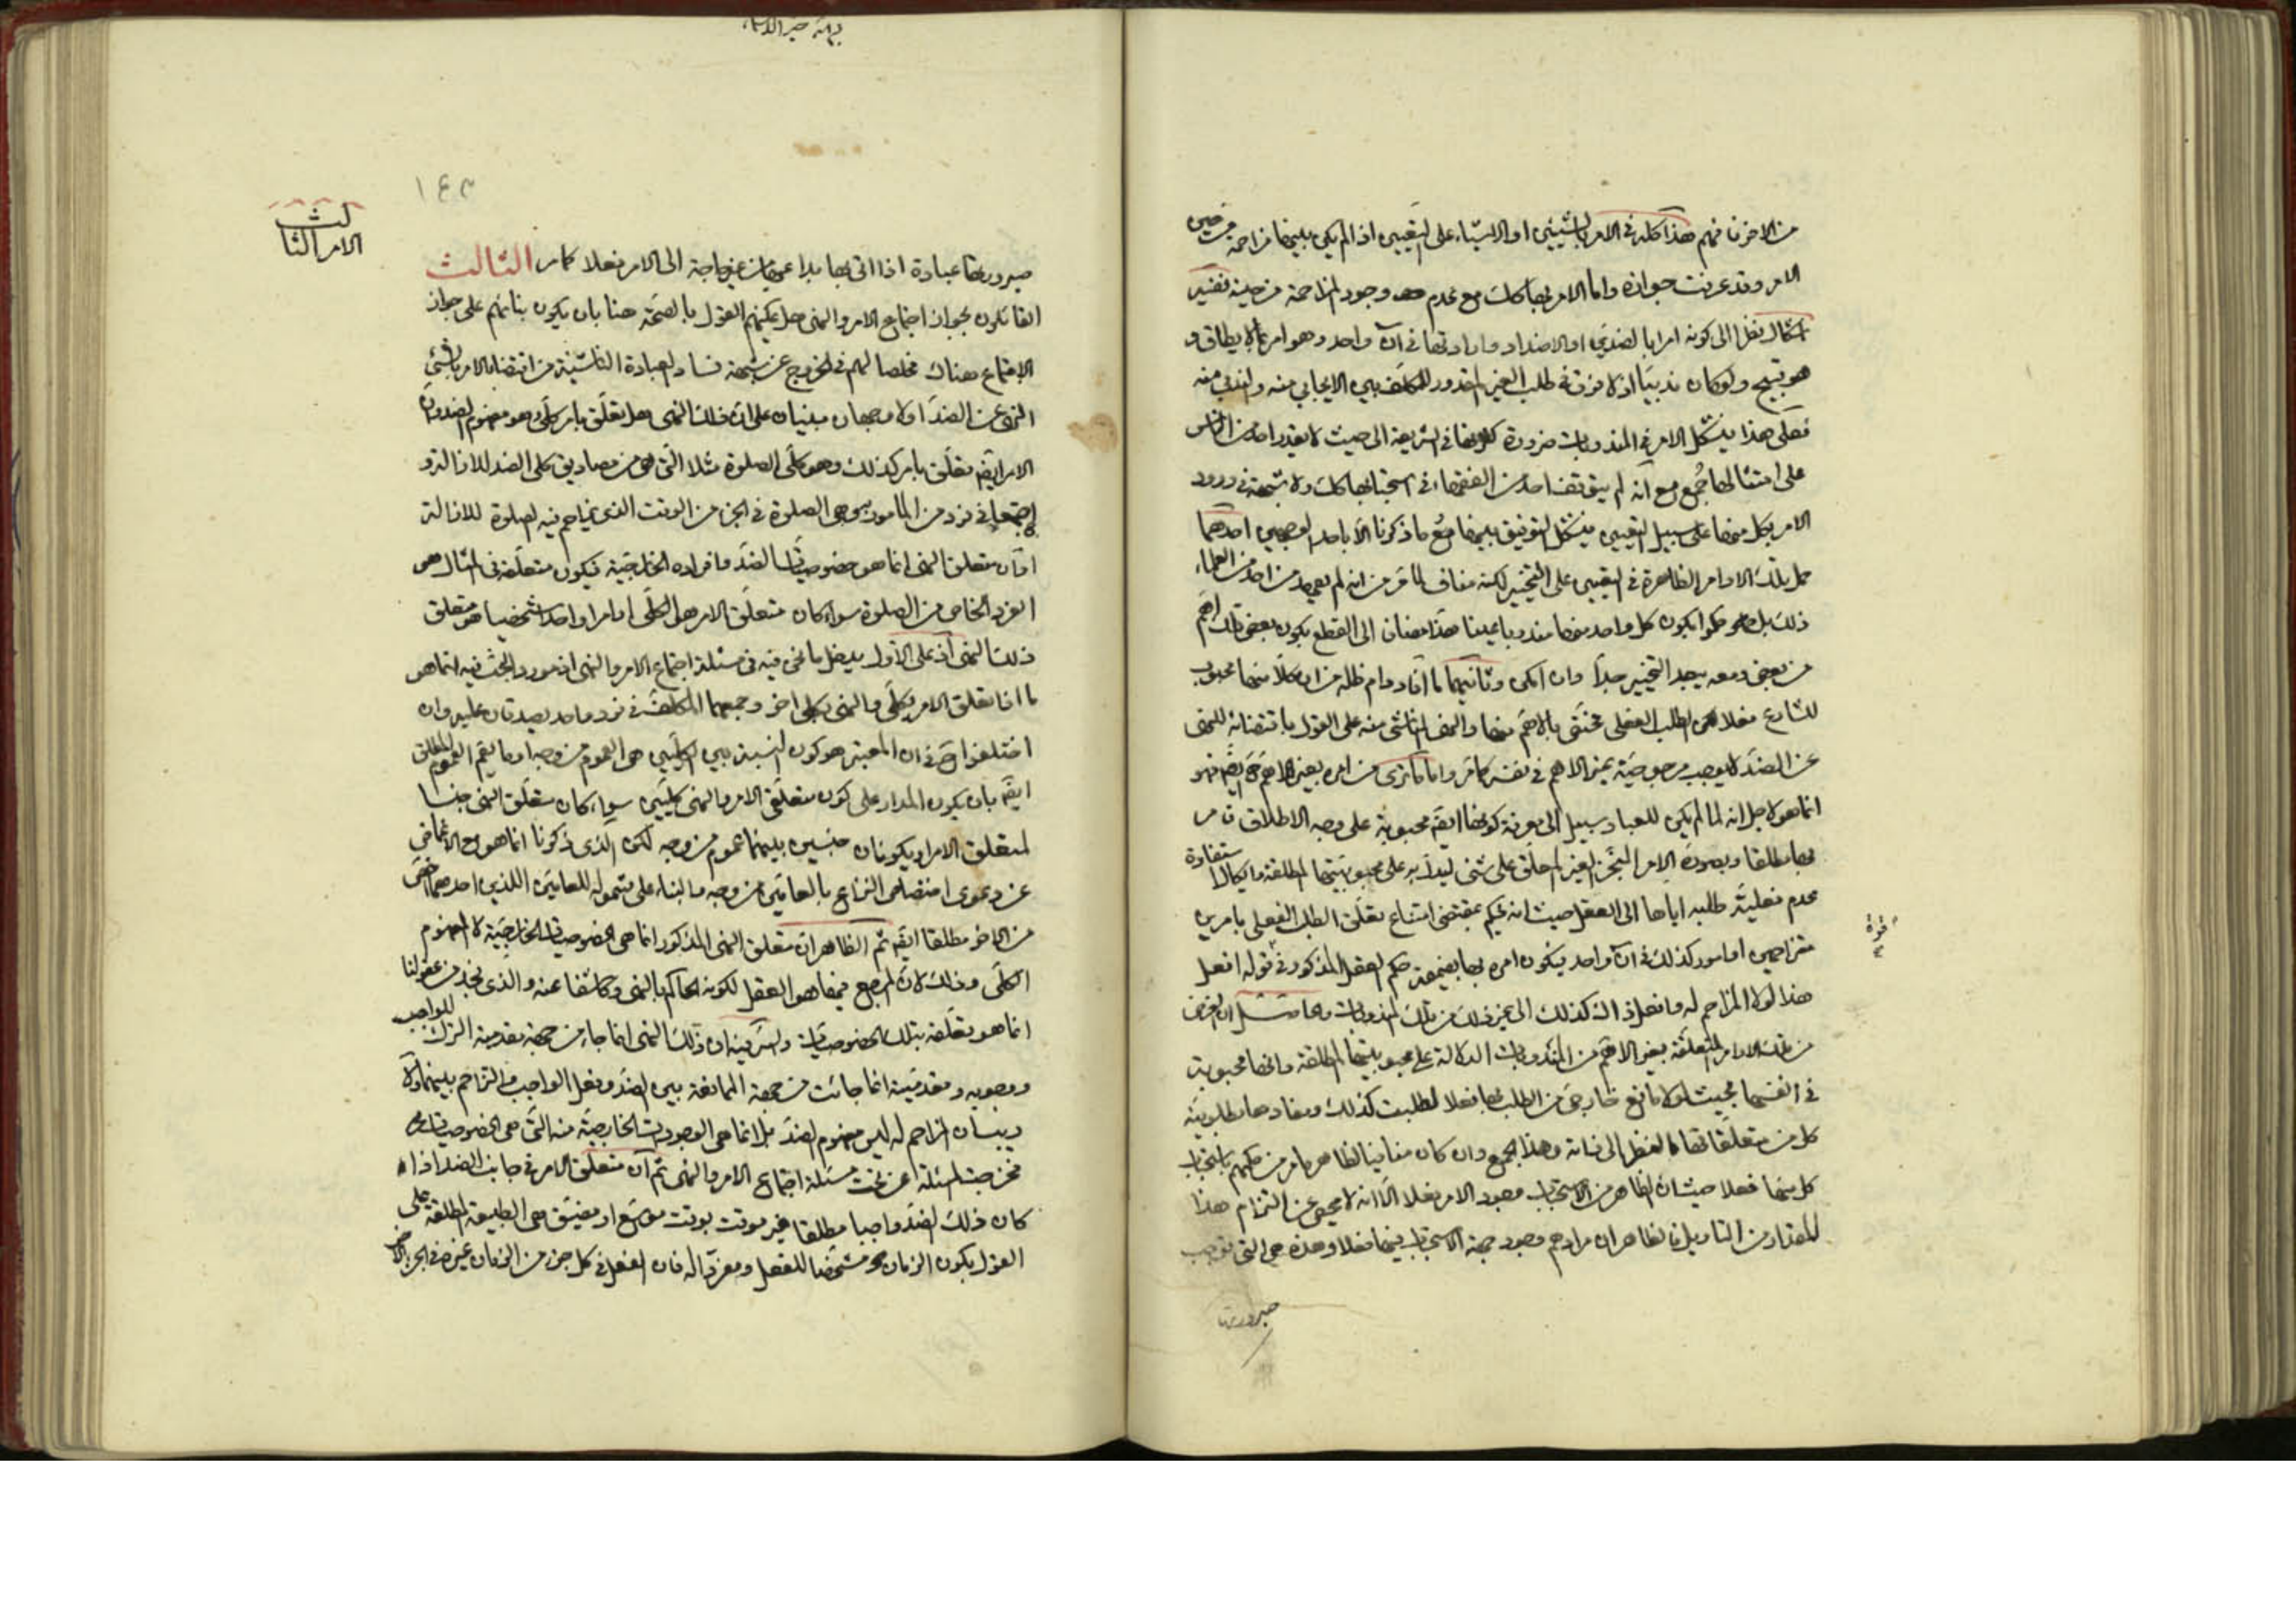 من الاخر فافهم هذا كله في الامر بالشيئين او الاشياء على التعيين اذا لم يكن بينها مزاحمة من حين
الامر وقد عرفت جوازه واما الامر بها كك مع عدم وجود المزاحمة من حينه ففيه
اشكال نظرا الى كونه امرا بالضدين او الاضداد وارادتها في آن واحد وهو امر بما لا يطاق و
هو قبيح ولو كان ندبيا اذ لا فرق في طلب الغير المقدور للمكلف بين الايجابي منه والندبي منه
فعلى هذا يشكل الامر في المندوبات ضرورة كثرتها في الشريعة الى حيث لا يقدر احد من الناس
على امتثالها جمع مع انه لم يتوقف احد من الفقهاء في استحبابها كك ولا شبهة في ورود
الامر بكل منها على سبيل التعيين فيشكل التوفيق بينها مع ما ذكرنا الا باحد الوجهين احدهما
حمل تلك الاوامر الظاهرة في التعيين على التخيير لكنه مناف لما مر من انه لم يعهد من احد من العلماء
ذلك بل حكموا بكون كل واحد منها مندوبا عينا هذا مضافا الى القطع بكون بعض تلك اهم
من بعض ومعه يبعد التخيير جدا وان امكن وثانيهما ما افاد دام ظله من ان كلا منها محبوب
للشارع فعلا لكن الطلب الفعلي مختص بالاهم منها والنهي الناشئ منه على القول باقتضائه للنهي
عن الضد لا يوجب مرجوحية غير الاهم في نفسه كما مر واما ما ترى من امره بغير الاهم ايضا فهو
انما هو لاجل انه لما لم يكن للعباد سبيل الى معرفة كونها ايضا محبوبة على وجه الاطلاق فامر
بها مطلقا وبصورة الامر المنجز الغير المعلق على شئ ليدل به على محبوبيتها المطلقة وايكالا استفادة
عدم فعلية طلبه اياها الى العقل حيث انه يحكم بمقتضى امتناع تعلق الطلب الفعلي بامرين
متزاحمين او امور كذلك في آن واحد فيكون امره بها بضميمة حكم العقل المذكور في قوة قوله افعل
هذا لولا المزاحم له وافعل ذاك كذلك الى غير ذلك من تلك المندوبات وحاصله ان الغرض
من تلك الاوامر المتعلقة بغير الاهم من المندوبات الدلالة على محبوبيتها المطلقة وانها محبوبة
في انفسها بحيث لولا مانع خارجي من الطلب بها فعلا لطلبت كذلك ومفادها مطلوبية
كل من متعلقاتها مع الغض الى ذاته وهذا الجمع وان كان منافيا لظاهر ما مر من حكمهم باستحباب
كل منها فعلا حيث ان الظاهر من الاستحباب وجود الامر فعلا الا انه لا محيص عن التزام هذا
المقدار من التاويل فالظاهر ان مرادهم وجود جهة الاستحباب فيها فعلا وهذه هي التي توجب
صيرورتها
١٤٣
الامر الثالث
صيرورتها عبادة اذا اتى بها بداعيها من غير حاجة الى الامر فعلا كما مر الثالث
القائلون بجواز اجتماع الامر والنهي هل يمكنهم القول بالصحة هنا بان يكون بنائهم على جواز
الاجتماع هناك مخلصا لهم في الخروج عن شبهة فساد العبادة الناشئة من اقتضاء الامر بالشئ
النهي عن الضد اولا وجهان مبنيان على ان ذلك النهي هل تعلق بامر كلي وهو مفهوم الضد وان
الامر ايضا متعلق بامر كذلك وهو كلي الصلوة مثلا التي هي من مصاديق كلي الضد للازالة و
اجتمعا في فرد من المامور به وهي الصلوة في الجزء من الوقت الذي يزاحم فيه الصلوة للازالة
او ان متعلق النهي انما هو خصوصيات الضد وافراده الخارجية فيكون متعلقه في المثال هو
الفرد الخاص من الصلوة سواء كان متعلق الامر هو الكلي او امرا واحدا شخصيا هو متعلق
ذلك النهي اذ على الاول يدخل ما نحن فيه في مسئلة اجتماع الامر والنهي اذ مورد البحث فيه انما هو
ما اذا تعلق الامر بكلي والنهي بكلي اخر وجمعهما المكلف في فرد واحد يصدقان عليه وان
اختلفوا في ان المعتبر هو كون النسبة بين الكليين هي العموم من وجه او ما يعم العموم المطلق
ايضا بان يكون المدار على كون متعلقي الامر والنهي كليين سواء كان متعلق النهي جنسا
لمتعلق الامر او يكونان جنسين بينهما عموم من وجه لكن الذي ذكرنا انما هو مع الاغماض
عن دعوى اختصاص النزاع بالعامين من وجه والبناء على شموله للعامين اللذين احدهما اخص
من الاخر مطلقا ايضا ثم الظاهر ان متعلق النهي المذكور انما هي الخصوصيات الخارجية لا المفهوم
الكلي وذلك لان المرجع فيها هو العقل لكونه الحاكم بالنهي وكاشفا عنه والذي نجد من عقولنا
انما هو تعلقه بتلك الخصوصيات والسر فيه ان ذلك النهي انما جاء من جهة مقدمية الترك للواجب
ووجوبه ومقدميته انما جائت من جهة الممانعة بين الضد وفعل الواجب والتزاحم بينهما ولا
ريب ان المزاحم له ليس مفهوم الضد بل انما هي الوجودات الخارجية منه التي هي الخصوصيات
فخرجت المسئلة عن تحت مسئلة اجتماع الامر والنهي ثم ان متعلق الامر في جانب الضد اذا
كان ذلك الضد واجبا مطلقا غير موقت بوقت موسع او مضيق هي الطبيعة المطلقة على
القول بكون الزمان مشخصا للفعل ومفردا له فان الفعل في كل جزء من الزمان غيره في الجزء الاخر